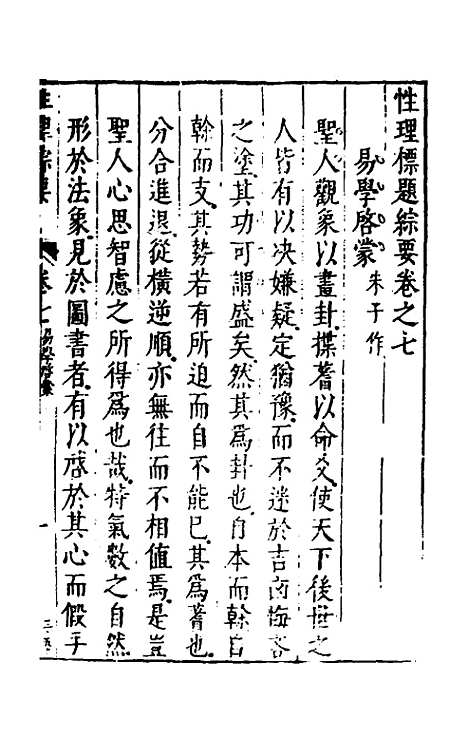 性理標題綜要卷之七
易學啓蒙 朱子作
聖人觀象以畫卦揲蓍以命爻使天下後世之
人皆有以决嫌疑定猶豫而不迷於吉凶悔吝
之塗其功可謂盛矣然其爲卦也自本而幹自
幹而支其勢若有所迫而自不能已其爲蓍也
分合進退從橫逆順亦無往而不相值焉是豈
聖人心思智慮之所得爲也哉特氣數之自然
形於法象見於圖書者有以啓於其心而假手
卷七 易學啓蒙 一